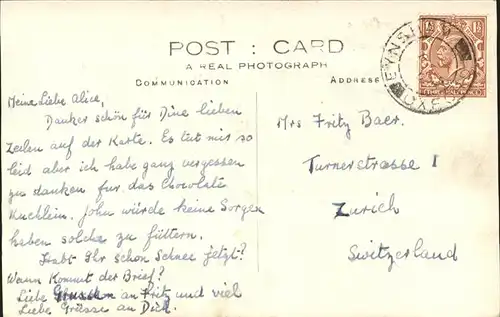 POST : CARD
A REAL PHOTOGRAPH
COMMUNICATION
ADDRESS
EYNSHAM
OXFORD
Meine Liebe Alice,
Danker schön für Dine lieben
Zeilen auf der Karte. Es tut mir so
leid aber ich habe ganz vergessen
zu danken für das Chocolate
Kuchlein. John würde keine Sorgen
haben solche zu füttern.
Habt Ihr schon Schnee jetzt?
Wann Kommt der Brief?
Liebe Grussen an Fritz und viel
Liebe Grüsse an Dich.
Mrs Fritz Baer.
Turnerstrasse 1
Zurich
Switzerland